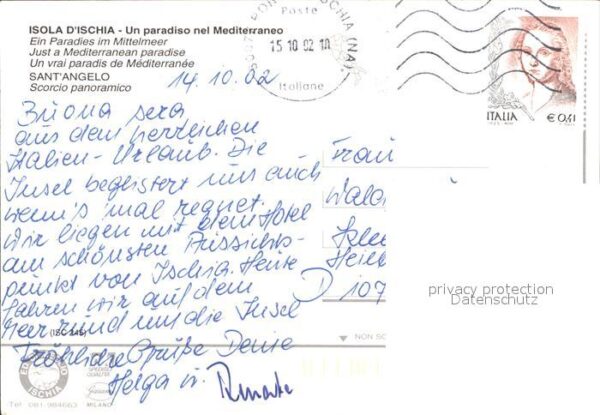 ISOLA D'ISCHIA - Un paradiso nel Mediterraneo
Ein Paradies im Mittelmeer
Just a Mediterranean paradise
Un vrai paradis de Méditerranée
SANT'ANGELO
Scorcio panoramico
Poste
15 10 02
Italiane
ISCHIA (NA)
ITALIA
€ 0,41
14.10.02
Buona sera
aus dem herrlichen
Italien-Urlaub. Die
Insel begeistert uns auch
wenn's mal regnet.
Wir liegen mit dem Hotel
am schönsten Aussichts-
punkt von Ischia. Heute
fahren wir auf dem
Meer rund um die Insel
Fröhliche Grüße Deine
Helga u. Renate
Frau
D 107
privacy protection
Datenschutz
(ISC 245)
NON SC
ISCHIA
MILANO
Tel. 081-984663